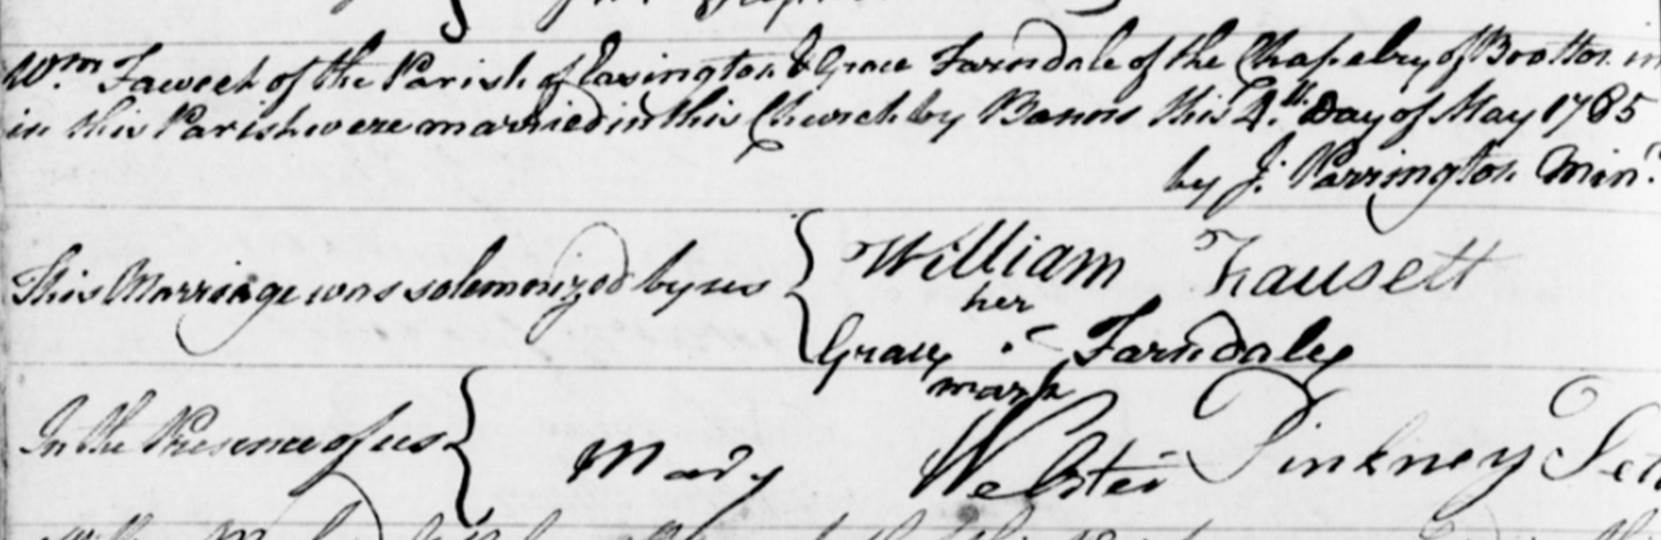 Wm. Faweet of the Parish of Easington & Grace Farndale of the Chapelry of Brotton in
in this Parish were married in this Church by Banns this 4th. Day of May 1785
by J. Parrington Minr.
This Marriage was solemnized by us { William Fausett
her
Grace Farndale
mark
In the Presence of us { Mary Webster Pinkney